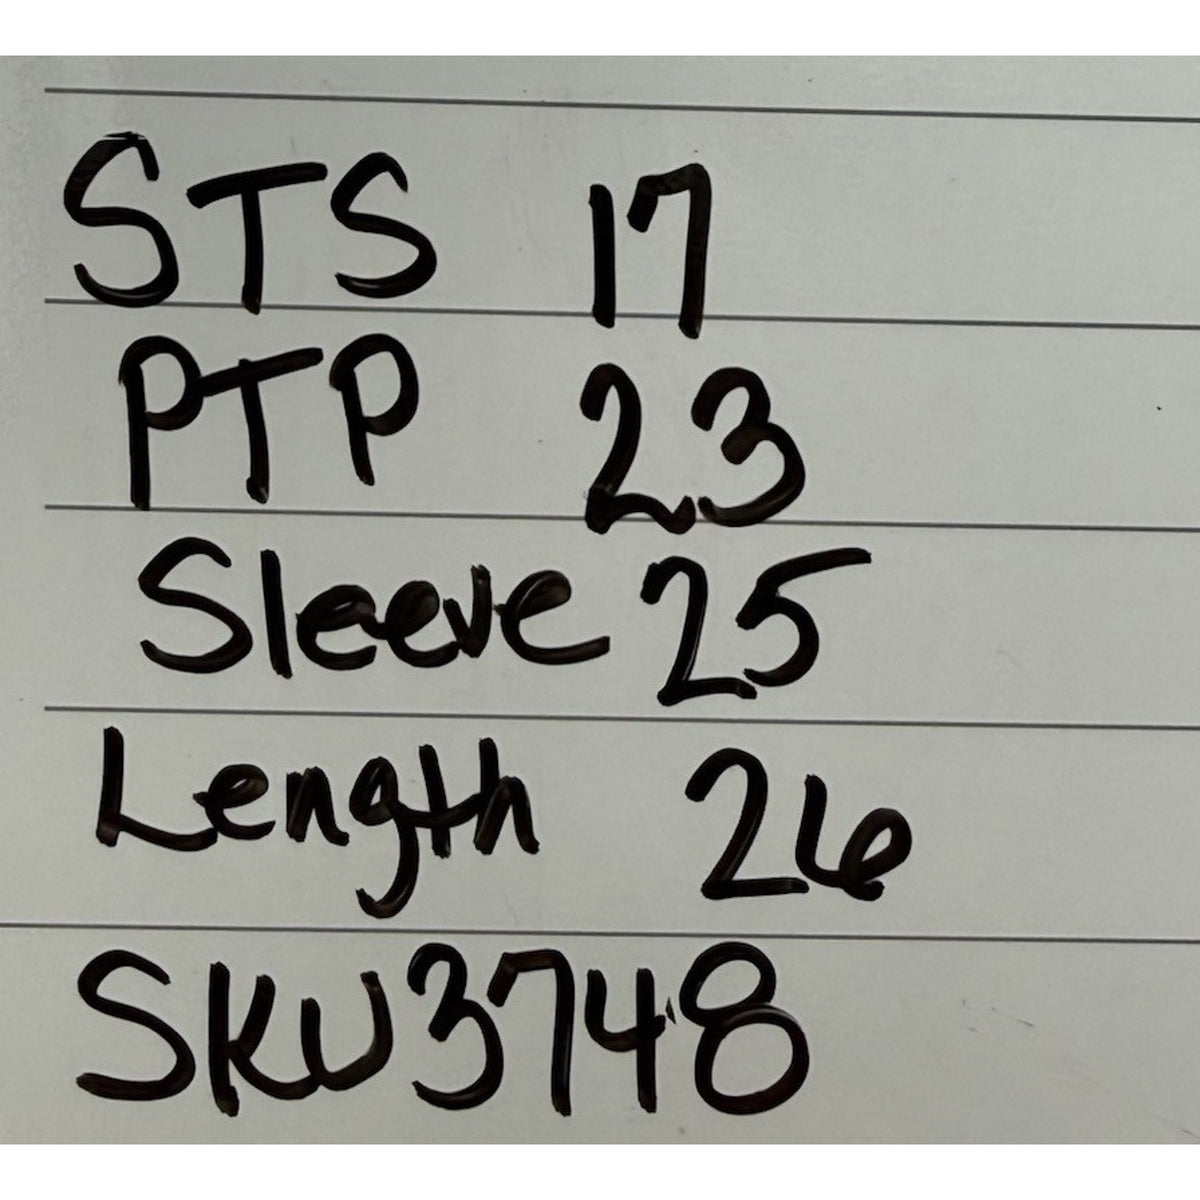 STS 17
PTP 23
Sleeve 25
Length 26
SKU3748